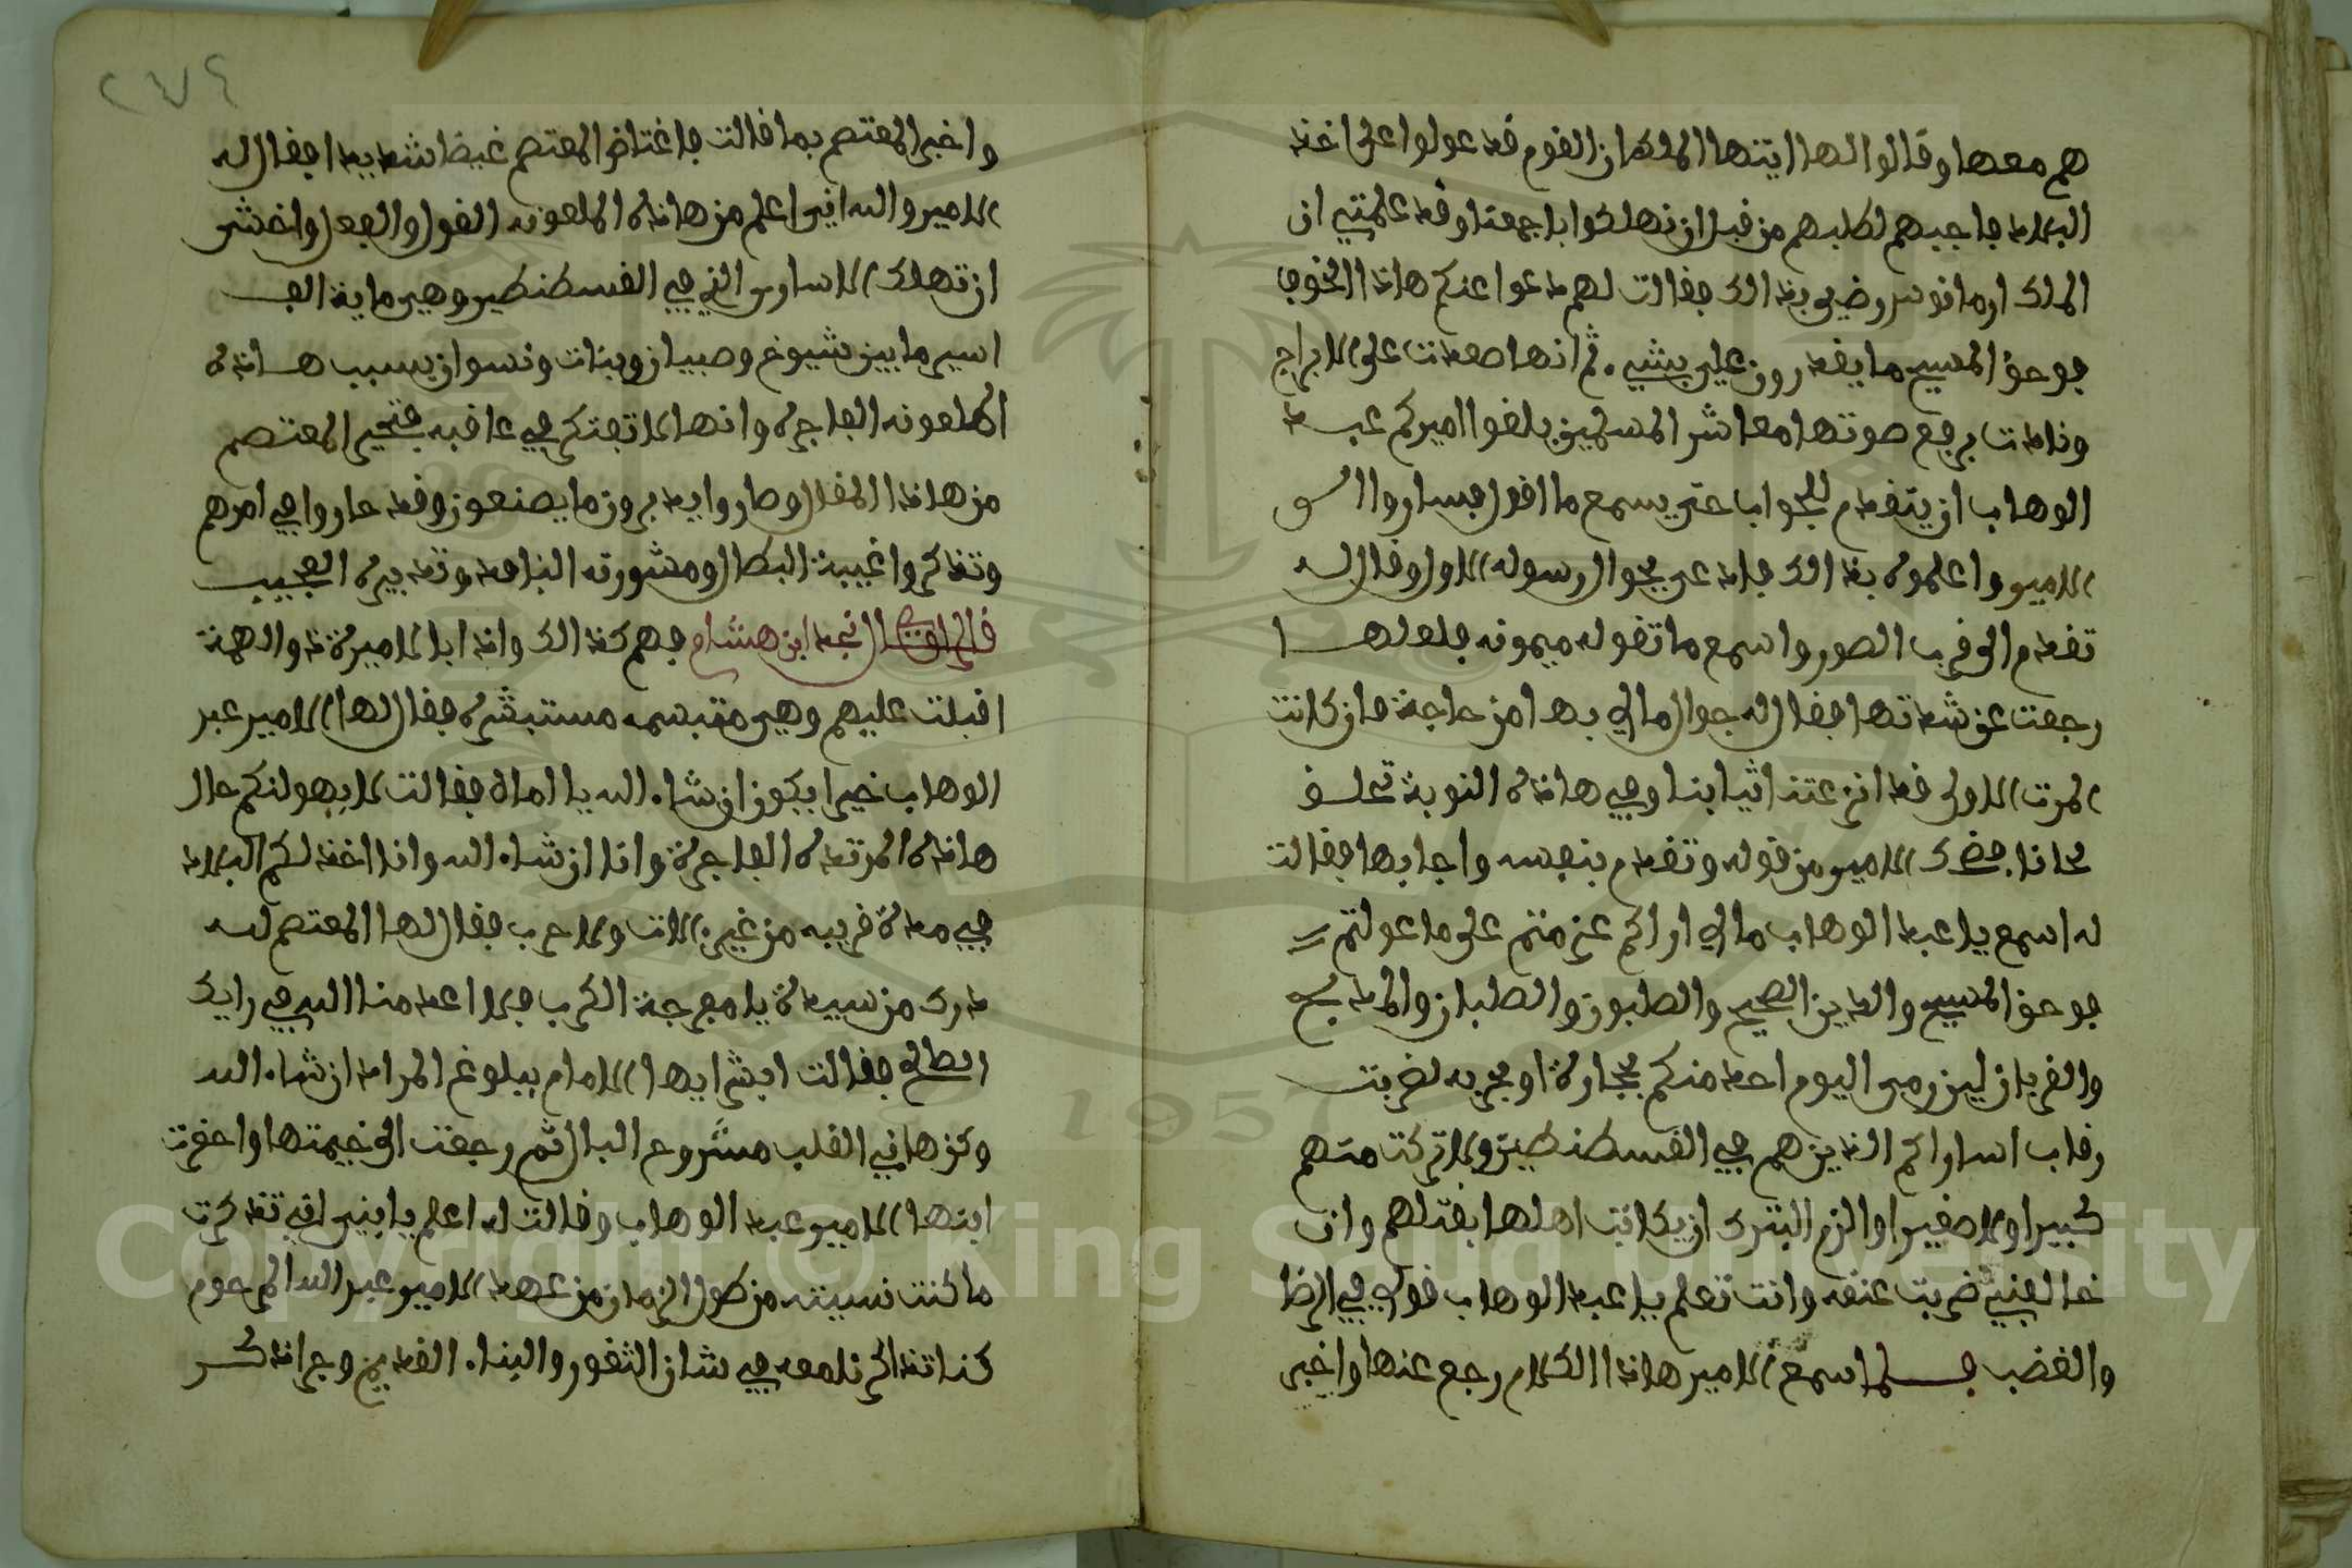 هم معها وقالوا لها ايتها الملكة ان القوم قد عولوا على اخذ
البلاد فاجبهم لطلبهم من قبل ان نهلكوا باجمعنا وقد علمتي ان
الملك ارمانوس رضي بذالك فقالت لهم دعوا عنكم هاذا الخوف
فوحق المسيح ما يقدرون علي بشيء ثم انها صعدت على الابراج
ونادت برفع صوتها معاشر المسلمين بلغوا اميركم عبد
الوهاب ان يتقدم للجواب حتى يسمع ما اقول فساروا الى
الامير واعلموه بذالك فدعى بجوال رسوله الاول وقال له
تقدم الى قرب الصور واسمع ما تقوله ميمونه فلعلها
رجعت عن شدتها فقال له جوال مالي بها من حاجة فان كانت
المرت الاولى قد انزعتنا ثيابنا وفي هاذه النوبة تحلف
لحانا فضحك الامير من قوله وتقدم بنفسه واجابها فقالت
له اسمع يا عبد الوهاب مالي اراكم عزمتم على ما عولتم
فوحق المسيح والدين الصحيح والصلبون والصلبان والمذبح
والقربان لين رمى اليوم احد منكم بحجارة او بحربه لضربت
رقاب اساراكم الذين هم في القسطنطين ولا تركت منهم
كبيرا ولا صغيرا والزم البترك ان يكاتب اهلها بقتلهم وان
خالفني ضربت عنقه وانت تعلم يا عبد الوهاب قولي في الرضا
والغضب فلما سمع الامير هاذا الكلام رجع عنها واخبر
٢٧٤
واخبر المعتصم بما قالت فاغتاض المعتصم غيضا شديدا فقال له
الامير والله اني اعلم من هاذه الملعونه القول والفعل واخشى
ان تهلك الاسارى الذي في القسطنطين وهي ماية الف
اسير ما بين شيوخ وصبيان وبنات ونسوان بسبب هاذه
الملعونه الفاجره وانها لا تفتكر في عاقبه فتحير المعتصم
من هاذا المقال وصاروا يدبرون ما يصنعون وقد حاروا في امرهم
وتذاكروا غيبة البطال ومشورته النافعه وتدبيره العجيب
قال الراوي نجد ابن هشام فهم كذالك واذا بالاميرة ذو الهمة
اقبلت عليهم وهي متبسمه مستبشره فقال لها الامير عبد
الوهاب خيرا يكون ان شاء الله يا اماه فقالت لا يهولنكم حال
هاذه المرتده الفاجرة وانا ان شاء الله وانا اخذ لكم البلاد
في مدة قريبه من غير الات ولا حرب فقال لها المعتصم لله
درك من سيدة يا مفرجة الكرب فلا اعدمنا الله في رايك
الصالح فقالت ابشر ايها الامام ببلوغ المراد ان شاء الله
وكن هاني القلب مشروح البال ثم رجعت الى خيمتها واحضرت
ابنها الامير عبد الوهاب وقالت له اعلم يا ابني اني تذكرت
ما كنت نسيته من طول الزمان من عهد الامير عبد الله المرحوم
كنا تذاكرنا معه في شان الثغور والبناء القديم وجرا ذكر